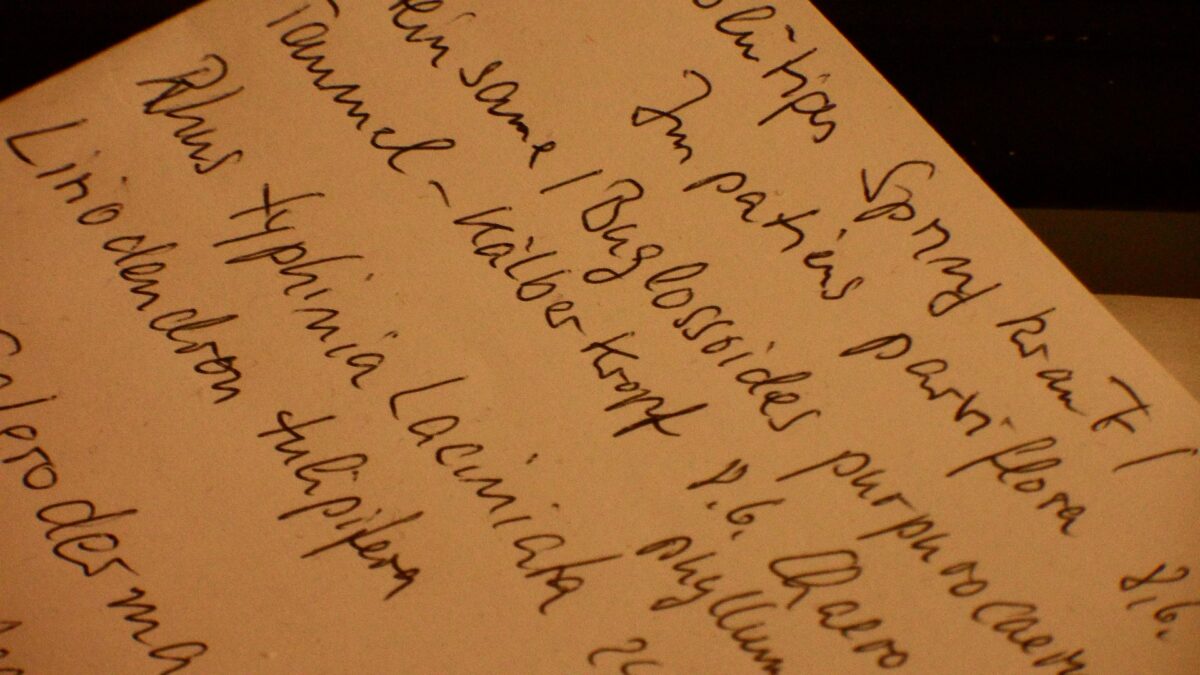 blütiges Springkraut /
Impatiens parviflora 8.6.
einsame / Buglossoides purpurocaeru
Taumel-Kälberkropf 8.6. Chaero
phyllum
Rhus typhinia Laciniata
Liriodendron tulipifera
cleroderma